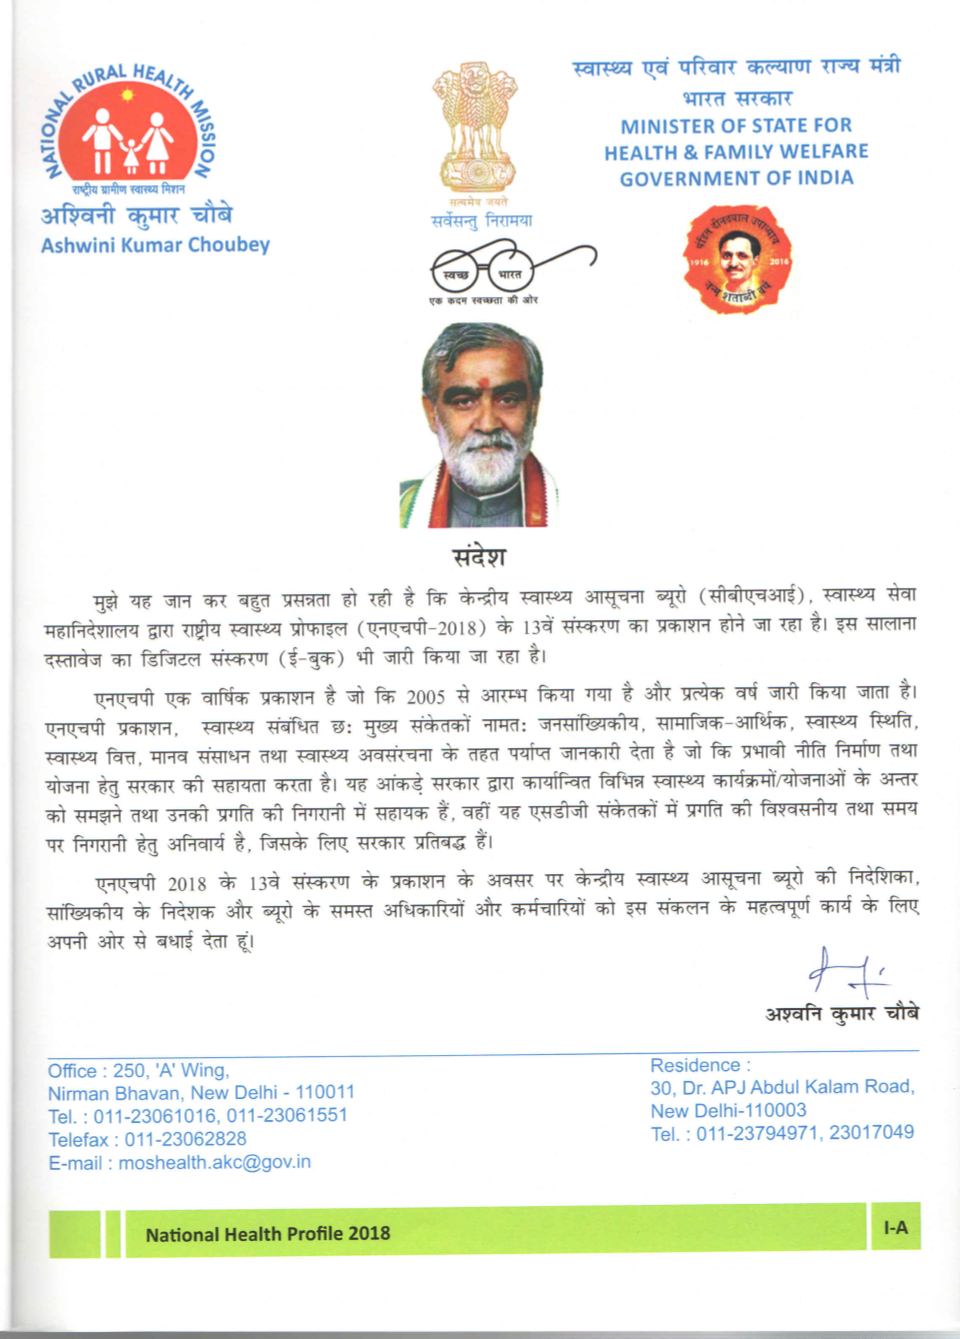 NATIONAL RURAL HEALTH MISSION
राष्ट्रीय ग्रामीण स्वास्थ्य मिशन
अश्विनी कुमार चौबे
Ashwini Kumar Choubey
सत्यमेव जयते
सर्वेसन्तु निरामया
स्वच्छ भारत
एक कदम स्वच्छता की ओर
स्वास्थ्य एवं परिवार कल्याण राज्य मंत्री
भारत सरकार
MINISTER OF STATE FOR
HEALTH & FAMILY WELFARE
GOVERNMENT OF INDIA
पंडित दीनदयाल उपाध्याय
1916 2016
जन्म शताब्दी वर्ष
संदेश
मुझे यह जान कर बहुत प्रसन्नता हो रही है कि केन्द्रीय स्वास्थ्य आसूचना ब्यूरो (सीबीएचआई), स्वास्थ्य सेवा
महानिदेशालय द्वारा राष्ट्रीय स्वास्थ्य प्रोफाइल (एनएचपी-2018) के 13वें संस्करण का प्रकाशन होने जा रहा है। इस सालाना
दस्तावेज का डिजिटल संस्करण (ई-बुक) भी जारी किया जा रहा है।
एनएचपी एक वार्षिक प्रकाशन है जो कि 2005 से आरम्भ किया गया है और प्रत्येक वर्ष जारी किया जाता है।
एनएचपी प्रकाशन, स्वास्थ्य संबंधित छः मुख्य संकेतकों नामतः जनसांख्यिकीय, सामाजिक-आर्थिक, स्वास्थ्य स्थिति,
स्वास्थ्य वित्त, मानव संसाधन तथा स्वास्थ्य अवसंरचना के तहत पर्याप्त जानकारी देता है जो कि प्रभावी नीति निर्माण तथा
योजना हेतु सरकार की सहायता करता है। यह आंकड़े सरकार द्वारा कार्यान्वित विभिन्न स्वास्थ्य कार्यक्रमों/योजनाओं के अन्तर
को समझने तथा उनकी प्रगति की निगरानी में सहायक हैं, वहीं यह एसडीजी संकेतकों में प्रगति की विश्वसनीय तथा समय
पर निगरानी हेतु अनिवार्य है, जिसके लिए सरकार प्रतिबद्ध हैं।
एनएचपी 2018 के 13वे संस्करण के प्रकाशन के अवसर पर केन्द्रीय स्वास्थ्य आसूचना ब्यूरो की निदेशिका,
सांख्यिकीय के निदेशक और ब्यूरो के समस्त अधिकारियों और कर्मचारियों को इस संकलन के महत्वपूर्ण कार्य के लिए
अपनी ओर से बधाई देता हूं।
अश्वनि कुमार चौबे
Office : 250, 'A' Wing,
Nirman Bhavan, New Delhi - 110011
Tel. : 011-23061016, 011-23061551
Telefax : 011-23062828
E-mail : moshealth.akc@gov.in
Residence :
30, Dr. APJ Abdul Kalam Road,
New Delhi-110003
Tel. : 011-23794971, 23017049
National Health Profile 2018
I-A